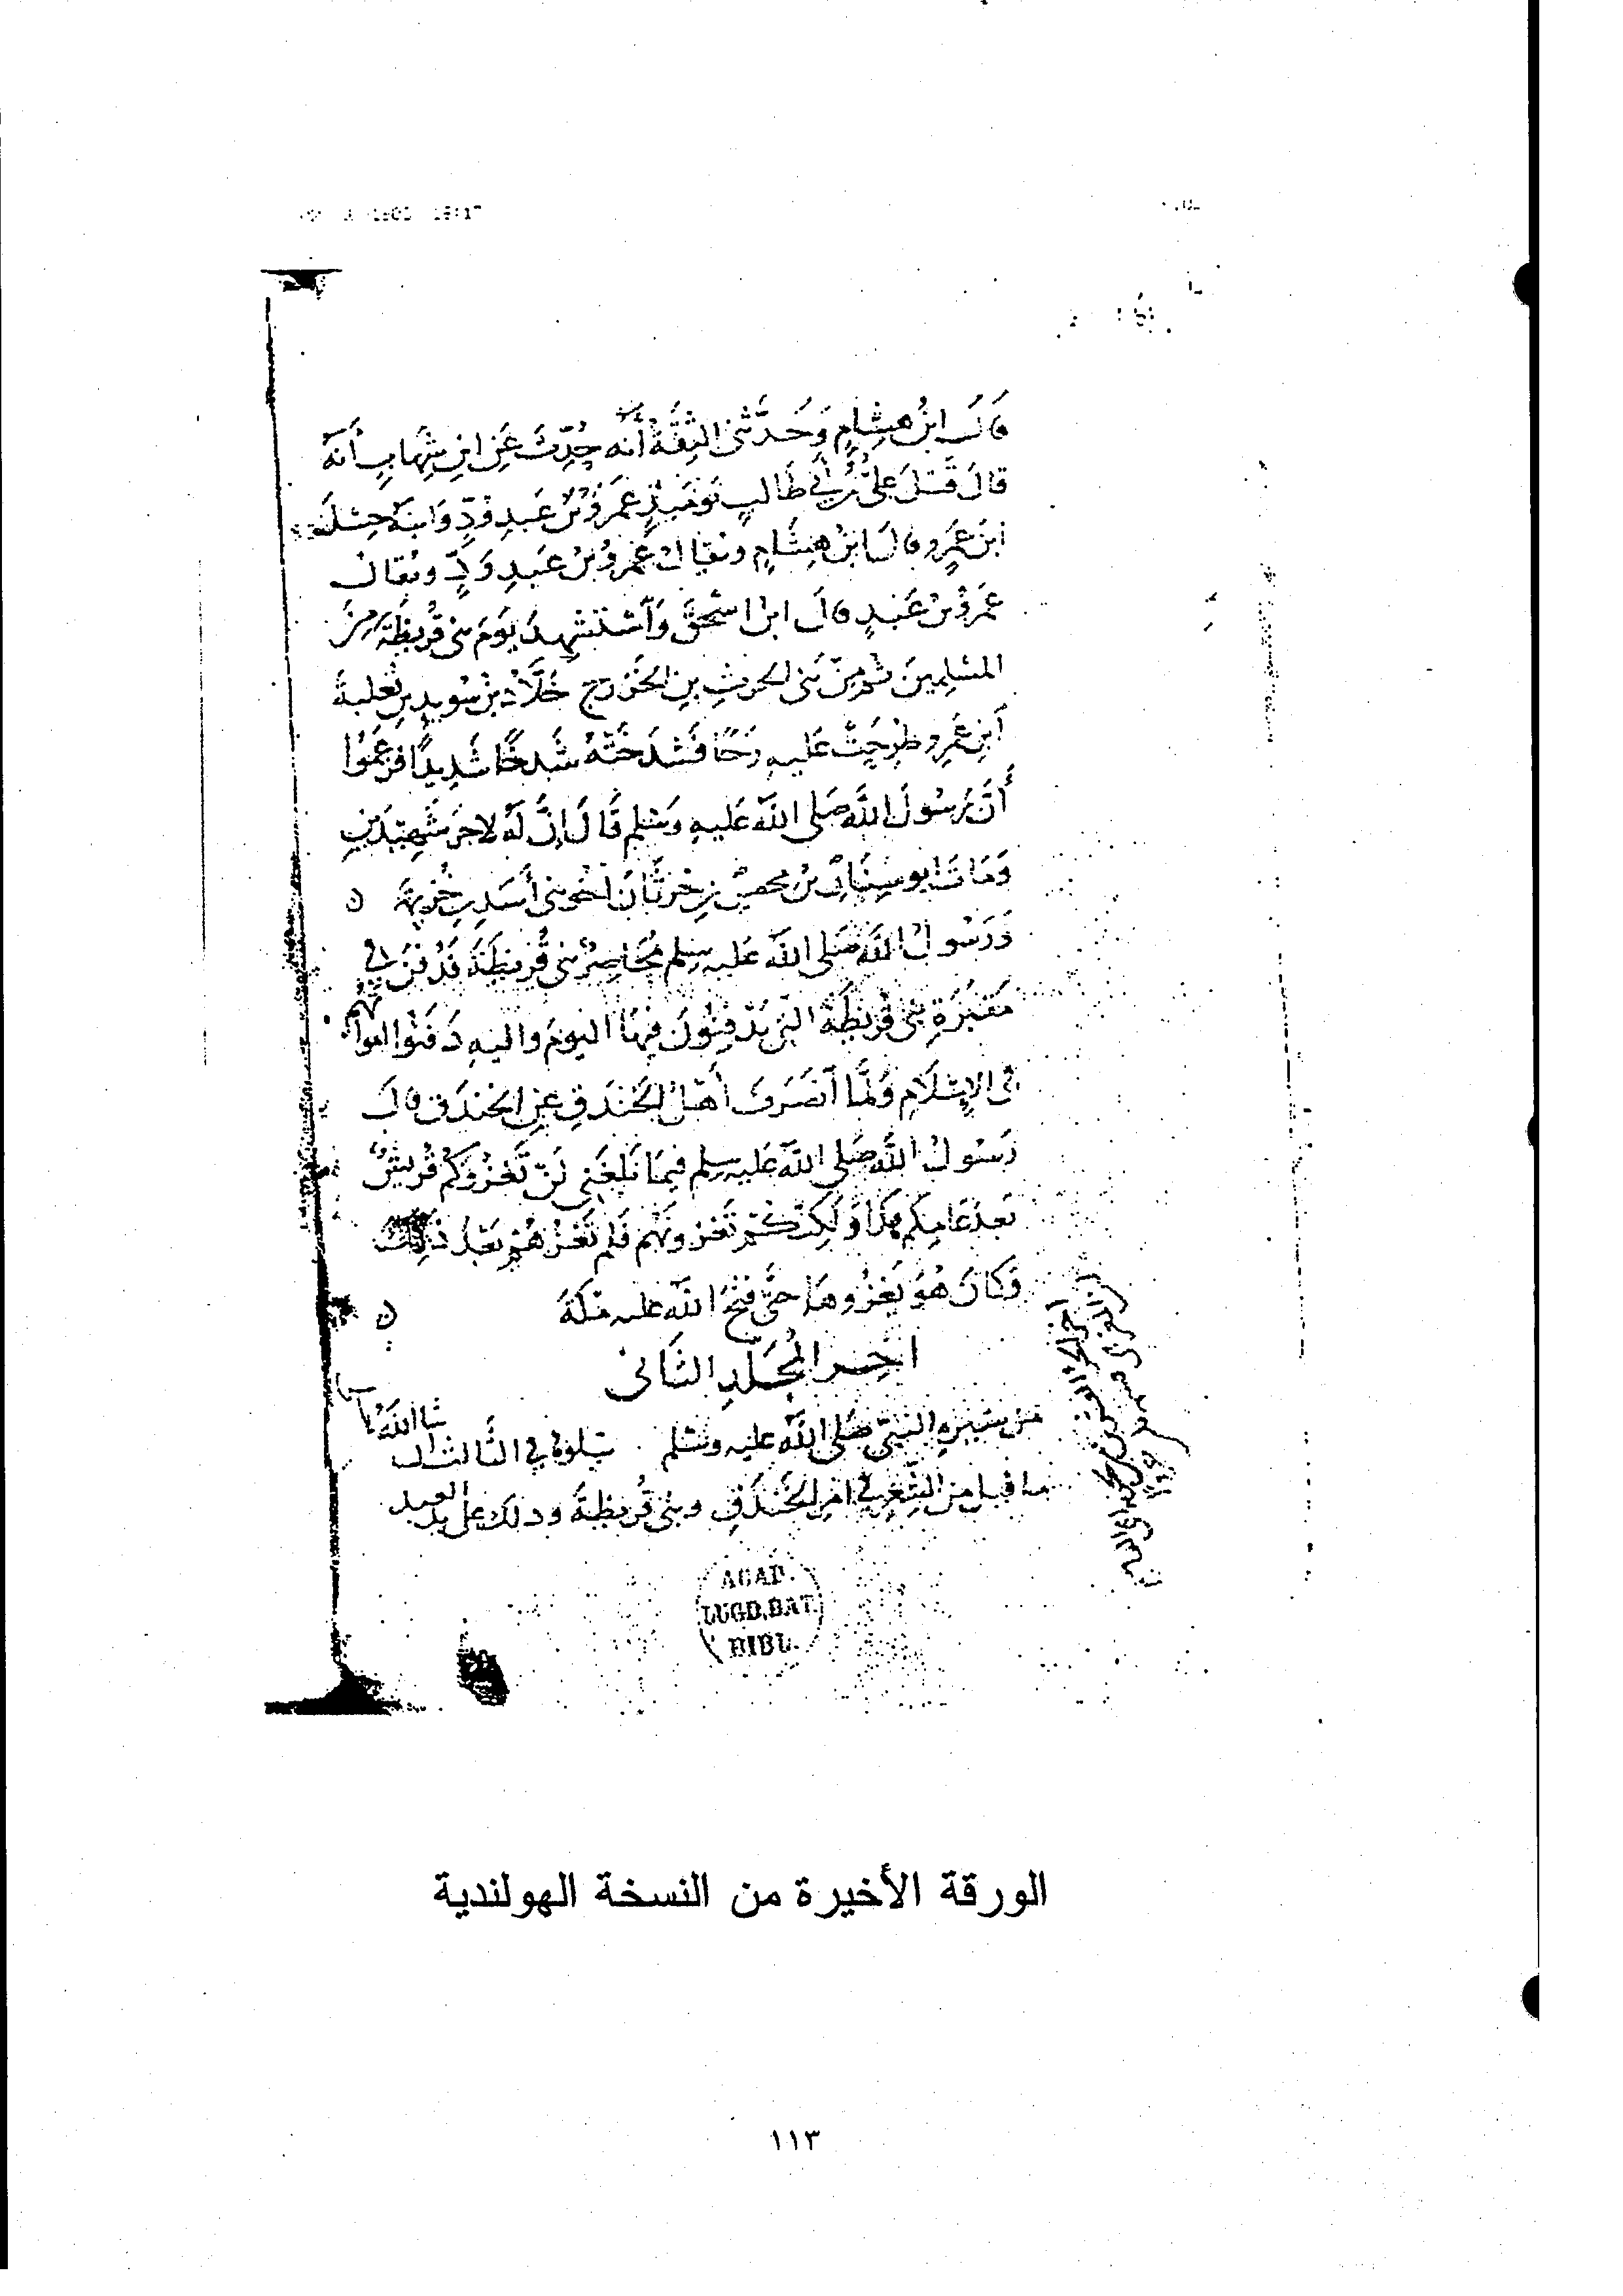 قَالَ ابنُ هِشَامٍ وَحَدَّثَنى الثِّقَةُ أنه حُدِّثَ عَن ابنِ شِهَابٍ أنهُ
قالَ قَتَلَ عَلِىُّ بنُ أبي طَالبٍ يَومَئِذٍ عَمرَو بنَ عَبدِ وُدٍّ وَابنَهُ حِسْلَ
ابنَ عَمرٍو قالَ ابنُ هِشَامٍ ويقالُ عَمرُو بنُ عَبدِ وَدٍّ ويُقال
عَمرُو بنُ عَبدٍ قالَ ابنُ اسحقَ وَآستُشهِدَ يَومَ بنى قُريظَةَ مِنَ
المسْلِمينَ ثم مِن بَنى الحرثِ بنِ الخَزرج خَلَّادُ بنُ سُويدِ بنِ ثَعلبةَ
آبنِ عَمرٍو طُرِحَت عَليهِ رَحًا فَشَدَخَتهُ شَدخًا شَدِيدًا فزعَمُوا
أنَّ رَسُولَ اللهِ صَلى اللهُ عَليهِ وَسَلم قَالَ إنَّ لَهُ لاجرَ شَهِيدَينِ
وَمَاتَ ابو سِنَانِ بنُ محصنِ بنِ حُرثَانَ اخُو بنى أسَدِ بنِ خُزيمَةَ ن
وَرَسُولُ اللهِ صَلى اللهُ عَليه وسلم مُحَاصِرٌ بنى قُريظَةَ فَدُفِنَ في
مَقبُرَةِ بنى قُريظَةَ التى يَدفِنُونَ فِيهَا اليَومَ واليهِ دَفَنُوا امواتهم
فى الإِسْلَامِ وَلَمَّا آنصَرَفَ أهلُ الخَندَقِ عَنِ الخندَقِ قالَ
رَسُولُ اللهِ صَلى اللهُ عَليه وسلم فِيمَا بَلَغَنى لَن تَغزُوَكُم قُرَيشٌ
بَعدَ عَامِكم هَذَا وَلَكِنَّكم تَغزُونَهُم فَلم تَغزُهُم بَعدَ ذَلِكَ
وَكَانَ هُوَ يَغزُوهَا حَتَّى فَتَحَ اللهُ عليه مَكَّةَ ن
اخِر المُجَلَّدِ الثَانى
مِن سِيرَةِ النَبِىّ صَلى اللهُ عليه وسَلم يَتلوهُ في الثَالث ان شا اللهُ
ما قيل من الشِّعرِ في امرِ الخَندَقِ وبنى قُريظَةَ وذلك على يد العبد
ACAD.
LUGD.BAT.
BIBL.
الورقة الأخيرة من النسخة الهولندية
١١٣